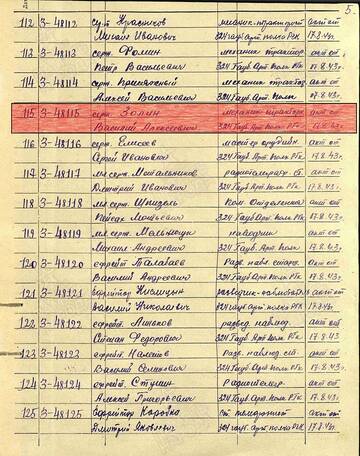 5
112 3-48112 серж. Красиков механик-тракторист акт от
Михаил Иванович 324 гауб. арт. полк РГК 17.8.43г.
112 3-48113 серж. Фомин механик трактор. акт от
Петр Васильевич 324 Гауб. Арт. полк РГк 17.8.43г.
114 3-48114 серж. механик трактор. акт от
Алексей Васильевич 324 Гауб. Арт. Полк 17.8.43г.
115 3-48115 серж. Зорин механик тракторис акт от
Василий Алексеевич 324 Гауб. Арт. полк РГк 17.8.43г.
116 3-48116 серж. Елисеев мастер орудийн. акт от
Сергей Иванович 324 Гауб. Арт. полк РГк 17.8.43г.
117 3-48117 мл. серж. Мешалников акт от
Дмитрий Иванович 324 Гауб. Арт. полк РГк 17.8.43.
118 3-48118 мл. серж. Шпизель Ком. Отделения акт от
324 Гауб. Арт. полк РГк 17.8.43г.
119 3-48119 мл. серж. наводчик акт от
Михаил Андреевич 324 Гауб. Арт. полк 17.8.43г.
120 3-48120 ефрейт. Талалаев разв. акт от
Василий Андреевич 324 Гауб. Арт. полк РГк 17.8.43г.
121 3-48121 Ефрейтор разведчик-наблюдат акт от
Василий Николаевич 324 гауб. арт. полк РГК 17.8.43г.
122 3-48122 ефрейт. развед. наблюд. акт от
Степан Федорович 324 Гауб. Арт. полк РГк 17.8.43г.
123 3-48123 ефрейт. Разв. наблюд. акт от
Василий Семенович 324 Гауб. Арт. полк РГк 17.8.43г.
124 3-48124 ефрейт. Ступин Радиотелегр. акт от
Алексей Григорьевич 324 Гауб. Арт. полк РГк 17.8.43г.
125 3-48125 Ефрейтор Коробко ст. телефонист акт от
Дмитрий Яковлевич 324 гауб. арт. полк РГК 17.8.43г.